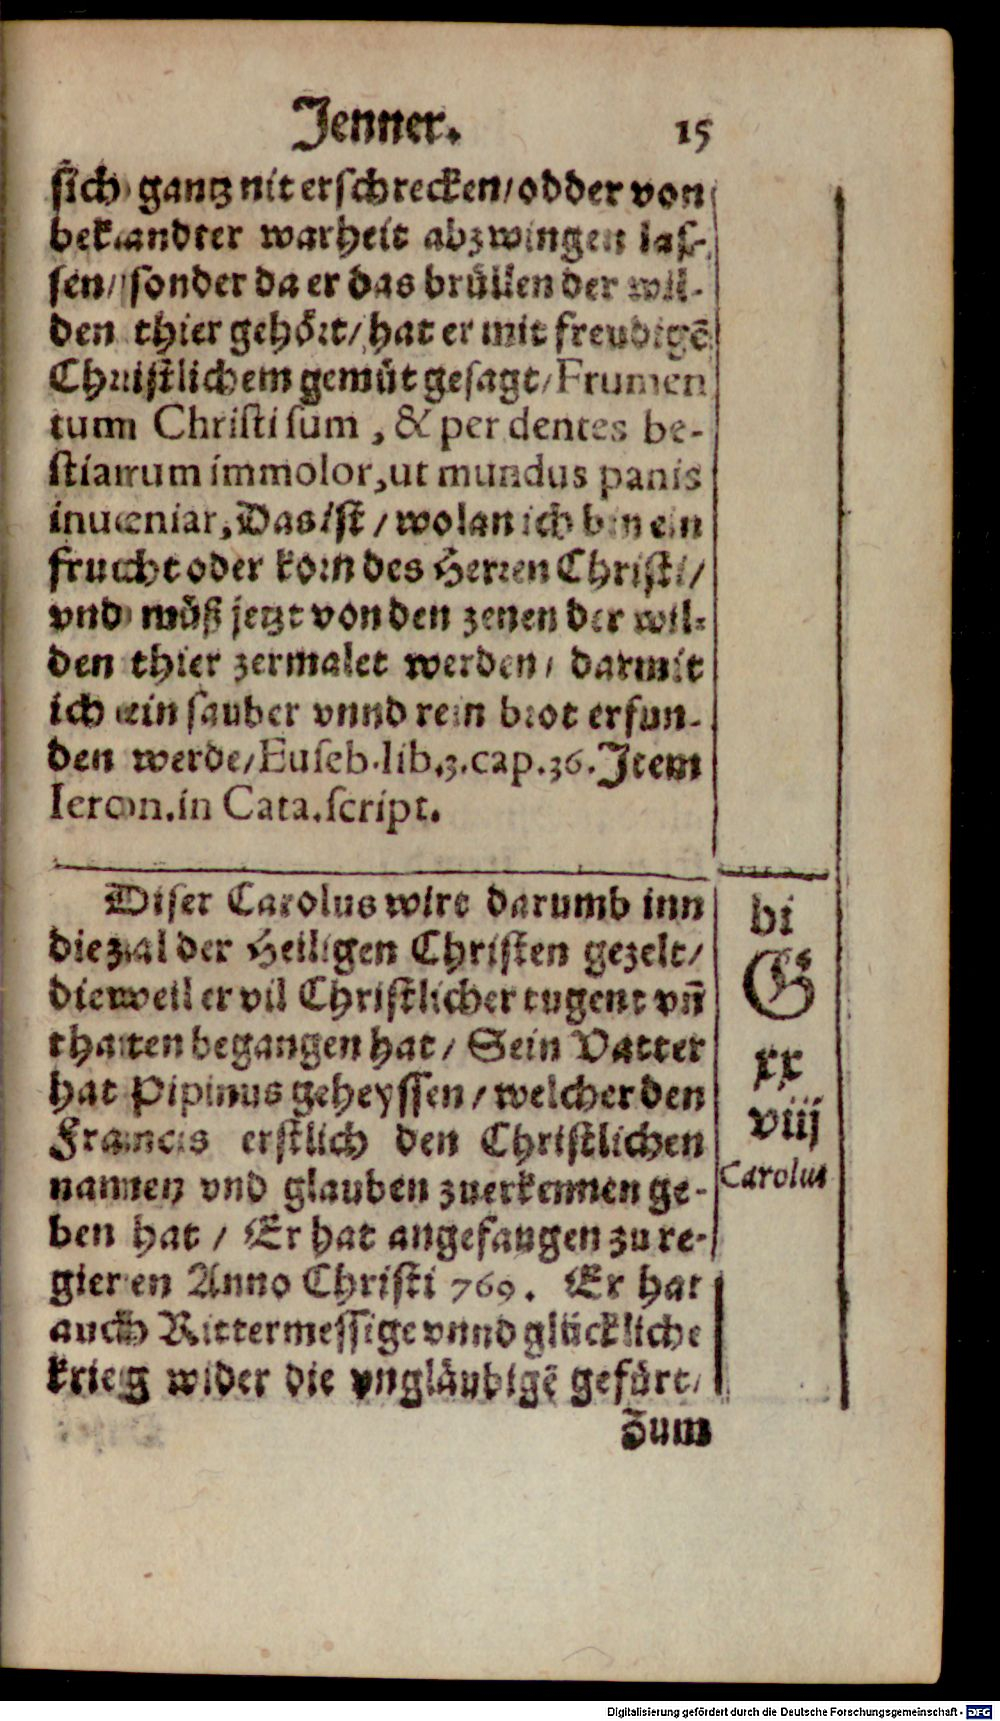 Jenner. 15
sich gantz nit erschrecken/ odder von
bekandter warheit abzwingen las-
sen/ sonder da er das brüllen der wil-
den thier gehört/ hat er mit freudigē
Christlichem gemüt gesagt/ Frumen
tum Christi sum, & per dentes be-
stiarum immolor, ut mundus panis
inueniar, Das ist / wolan ich bin ein
frucht oder korn des Herren Christi/
vnd můß jetzt von den zenen der wil-
den thier zermalet werden/ darmit
ich ein sauber vnnd rein brot erfun-
den werde/ Euseb. lib. 3. cap. 36. Item
Ieron. in Cata. script.
Diser Carolus wirt darumb inn
die zal der Heiligen Christen gezelt/
dieweil er vil Christlicher tugent vn̄
thaten begangen hat/ Sein Vatter
hat Pipinus geheyssen/ welcher den
Francis erstlich den Christlichen
namen vnd glauben zuerkennen ge-
ben hat / Er hat angefangen zu re-
gieren Anno Christi 769. Er hat
auch Rittermessige vnnd glückliche
krieg wider die vngläubigē gefürt/
zum
bi
G
xx
viij
Carolus
Digitalisierung gefördert durch die Deutsche Forschungsgemeinschaft - DFG